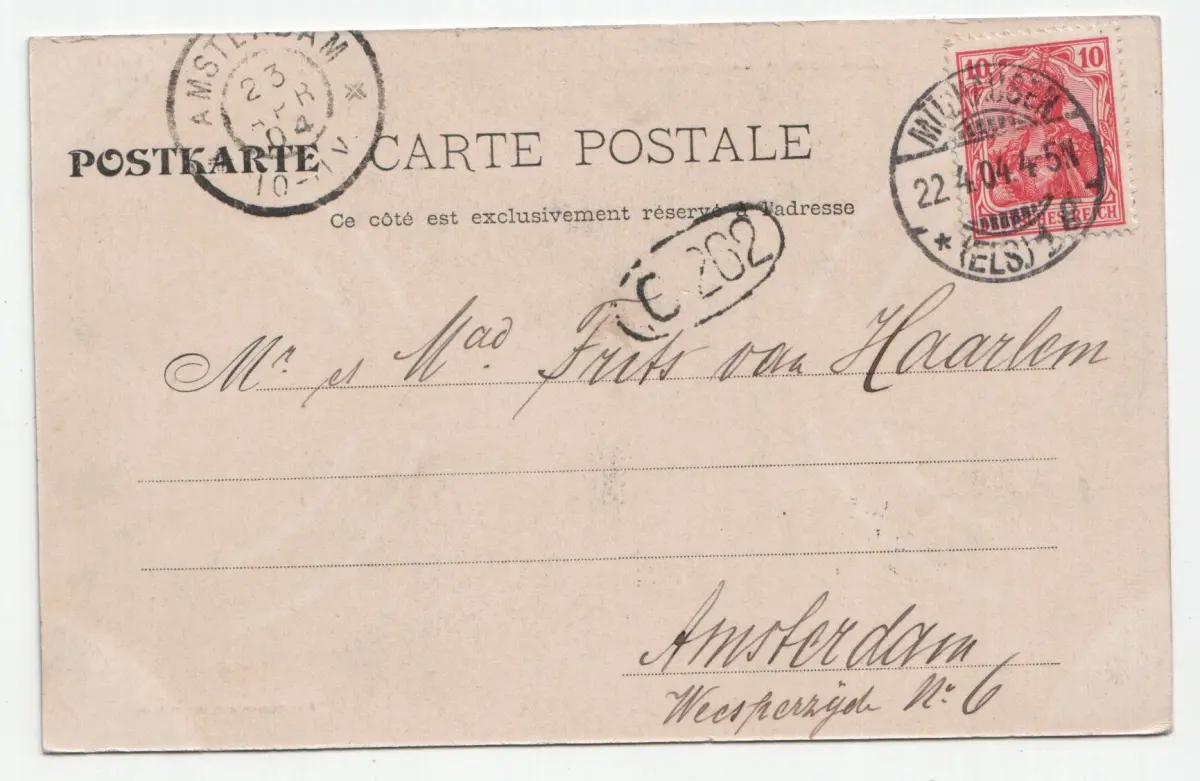 AMSTERDAM
23
04
POSTKARTE CARTE POSTALE
Ce côté est exclusivement réservé à l'adresse
10 10
MÜLHAUSEN
22.4.04.4-5N
* (ELS.) 1
REICH
202
Mr. et Mad Frits van Haarlem
Amsterdam
Weesperzijde No. 6